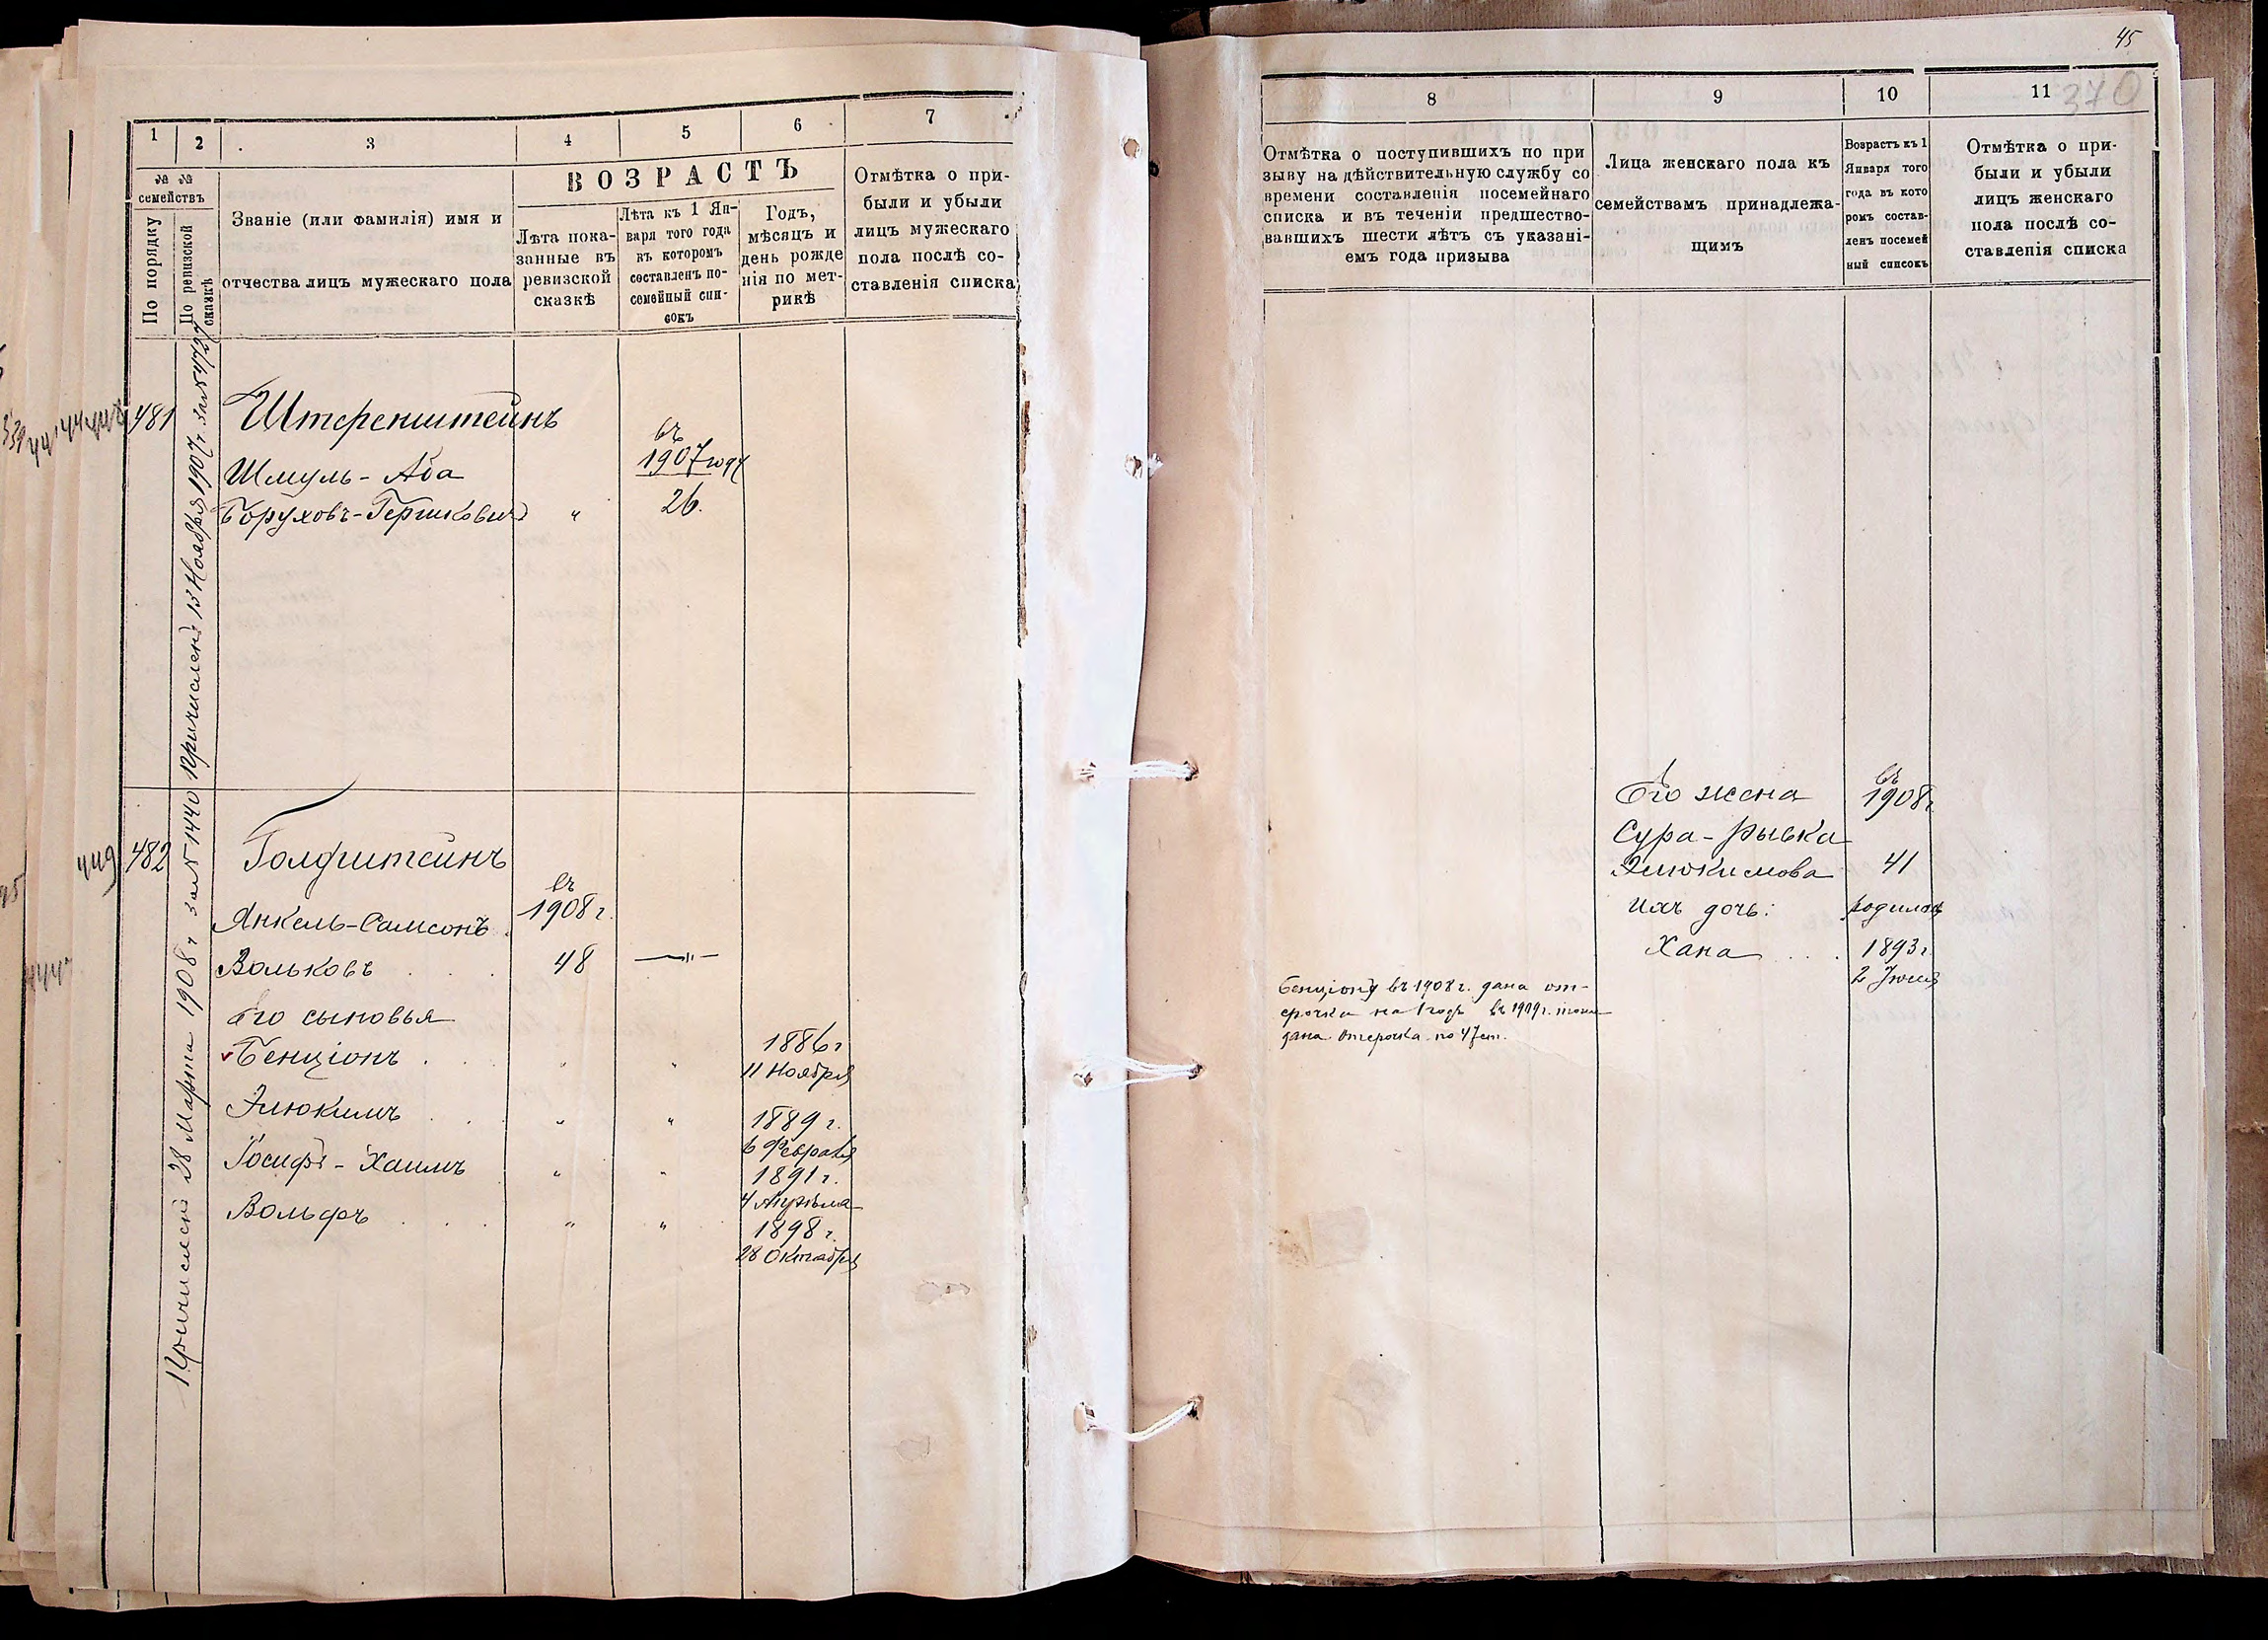 45
370
1 2 3 4 5 6 7
№ №
семействъ
По порядку
По ревизской
сказкѣ
Званіе (или фамилія) имя и
отчества лицъ мужескаго пола
ВОЗРАСТЪ
Лѣта пока-
занные въ
ревизской
сказкѣ
Лѣта къ 1 Ян-
варя того года
въ которомъ
составленъ по-
семейный спи-
сокъ
Годъ,
мѣсяцъ и
день рожде
нія по мет-
рикѣ
Отмѣтка о при-
были и убыли
лицъ мужескаго
пола послѣ со-
ставленія списка
481
Причисленъ 13 Ноября 1907 г.
Штеренштейнъ
Шмуль-Аба
Боруховъ-Гершковичъ "
въ
1907 году
26.
449
482
Причисленъ 28 Марта 1908 г. за № 1440
Голдштейнъ
Янкель-Самсонъ
Вольковъ
въ
1908 г.
48
Его сыновья
Бенціонъ " "
1886 г
11 Ноября
Элюкимъ " "
1889 г.
6 Февраля
Іосифъ-Хаимъ " "
1891 г.
4 Апрѣля
Вольфъ " "
1898 г.
28 Октября
8 9 10 11
Отмѣтка о поступившихъ по при
зыву на дѣйствительную службу со
времени составленія посемейнаго
списка и въ теченіи предшество-
вавшихъ шести лѣтъ съ указані-
емъ года призыва
Лица женскаго пола къ
семействамъ принадлежа-
щимъ
Возрастъ къ 1
Января того
года въ кото
ромъ состав-
ленъ посемей
ный списокъ
Отмѣтка о при-
были и убыли
лицъ женскаго
пола послѣ со-
ставленія списка
Его жена
Сура-Рывка
Элюкимова
въ
1908 г
41
Ихъ дочь:
Хана
родилась
1893 г.
2 Іюня
Бенціону въ 1908 г. дана от-
срочка на 1 годъ въ 1909 г.
дана отсрочка по 47 ст.